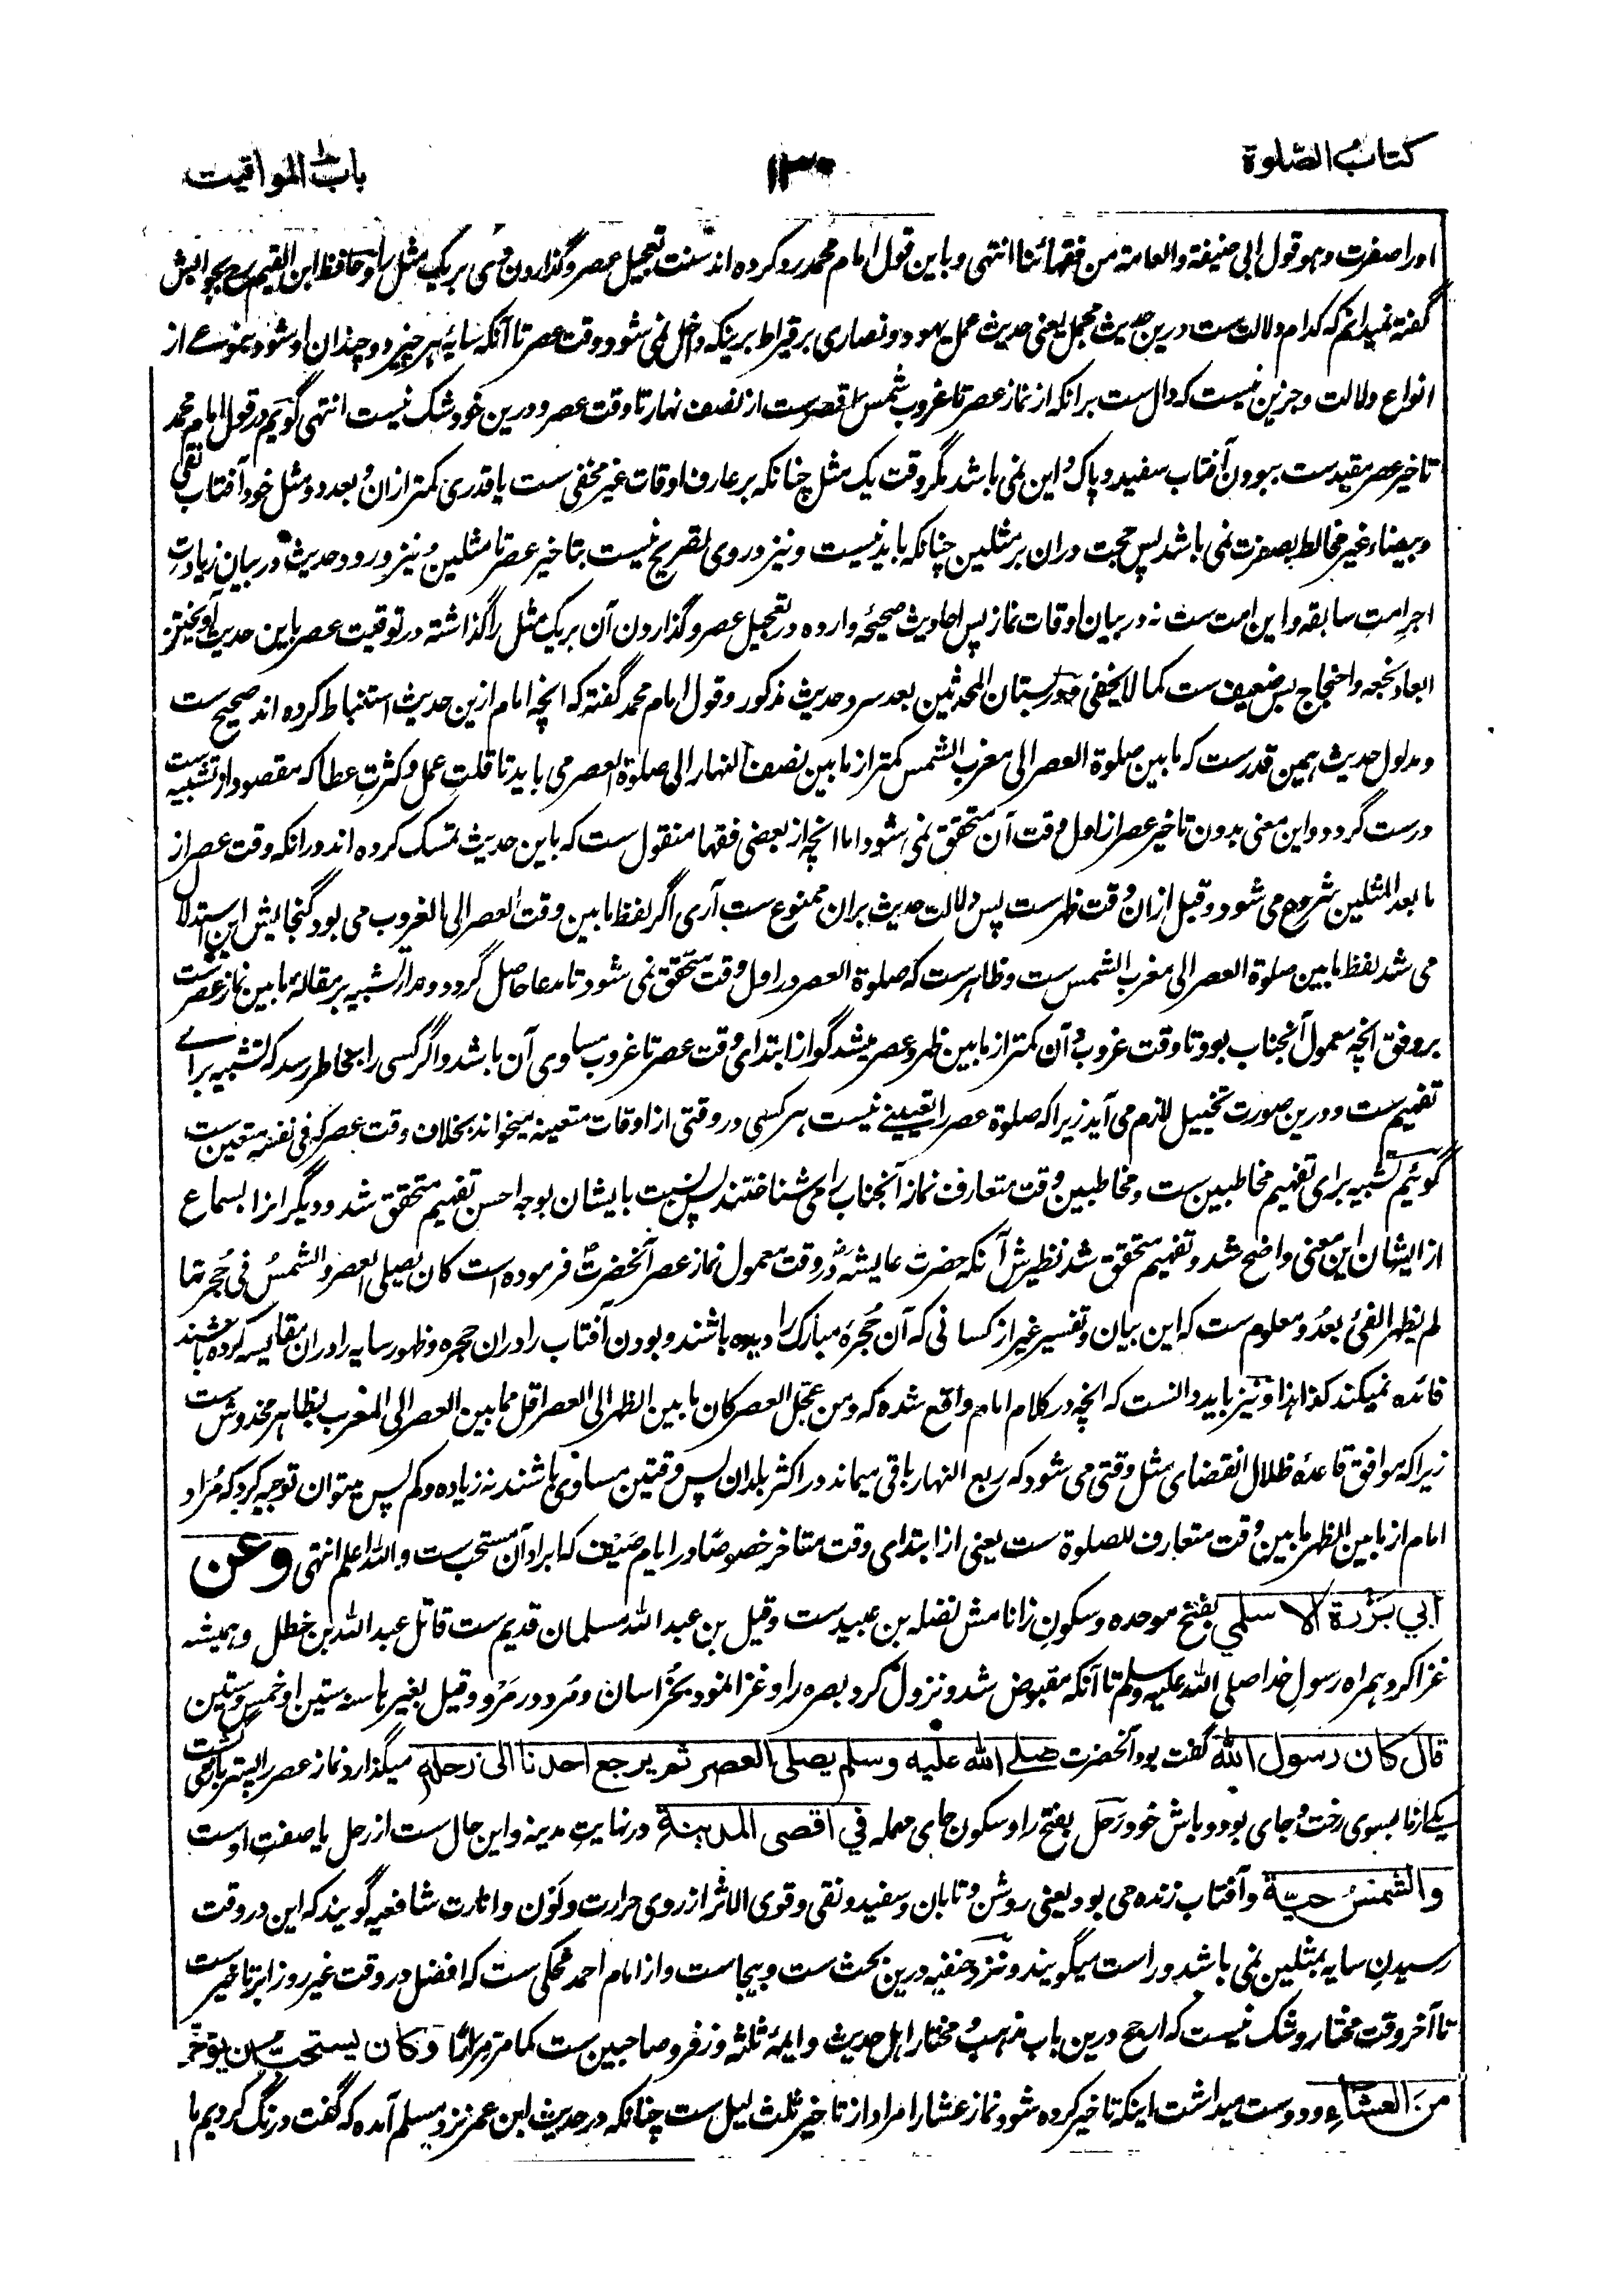 کتاب الصلوة
۱۳۰
باب المواقیت
اورا صفرت وهو قول ابی حنیفة والعامة من فقهائنا انتهی وباین قول امام محمد رد کرده اند سنت تعجیل عصر وگذاردن وی بر یک مثل را وحافظ ابن القیم رح بجوابش
گفته نمیدانم که کدام دلالت ست درین حدیث مجمل یعنی حدیث عمل یهود ونصاری بر قیراط برینکه داخل نمی شود وقت عصر تا آنکه سایۀ هر چیز دو چندان او شود بنوعے از
انواع دلالت وجزین نیست که دال ست برانکه از نماز عصر تا غروب شمس اقصر ست از نصف نهار تا وقت عصر ودرین خود شک نیست انتهی گویم در قول امام محمد
تاخیر عصر مقید ست ببودن آفتاب سفید وپاک واین نمی باشد مگر وقت یک مثل چنانکه بر عارف اوقات غیر مخفی ست یا قدری کمتر ازان وبعد دو مثل خود آفتاب نقی
وبیضاء غیر مخالط بصفرت نمی باشد پس حجت دران بر مثلین چنانکه باید نیست ونیز در وی تصریح نیست بتاخیر عصر تا مثلین ونیز ورود حدیث در بیان زیادتِ
اجر امت سابقه واین امت ست نه در بیان اوقات نماز پس احادیث صحیحۀ وارده در تعجیل عصر وگذاردن آن بر یک مثل را گذاشته در توقیت عصر باین حدیث آویختن
ابعاد نجعه واحتجاج بس ضعیف ست کما لا یخفی ودر بستان المحدثین بعد سرد حدیث مذکور وقول امام محمد گفته که انچه امام ازین حدیث استنباط کرده اند صحیح ست
ومدلول حدیث همین قدرست که ما بین صلوة العصر الی مغرب الشمس کمتر از ما بین نصف النهار الی صلوة العصر می باید تا قلتِ عمل وکثرتِ عطا که مقصود از تشبیه ست
درست گردد واین معنی بدون تاخیر عصر از اول وقت آن متحقق نمی شود اما انچه از بعضی فقها منقول ست که باین حدیث تمسک کرده اند در انکه وقت عصر از
ما بعد المثلین شروع می شود وقبل ازان وقت ظهر ست پس دلالت حدیث بران ممنوع ست آری اگر لفظ ما بین وقت العصر الی الغروب می بود گنجایش این استدلال
می شد لفظ ما بین صلوة العصر الی مغرب الشمس ست وظاهر ست که صلوة العصر در اول وقت متحقق نمی شود تا مدعا حاصل گردد ومدار تشبیه بر مقالۀ ما بین نماز عصرست
بر وفق انچه معمول آنجناب بود تا وقت غروب وآن کمتر از ما بین ظهر وعصر میشد گو از ابتدای وقت عصر تا غروب مساوی آن باشد واگر کسی را بخاطر رسد که تشبیه براے
تفهیم ست ودرین صورت تخییل لازم می آید زیرا که صلوة عصر را تعیینے نیست هر کسی در وقتی از اوقات متعینه میخواند بخلاف وقت عصر که فی نفسه متعین ست
گوئیم تشبیه برای تفهیم مخاطبین ست ومخاطبین وقت متعارف نماز آنجناب را می شناختند پس نسبت بایشان بوجه احسن تفهیم متحقق شد ودیگرانرا بسماع
از ایشان این معنی واضح شد وتفهیم متحقق شد نظیرش آنکه حضرت عایشه رض در وقت معمول نماز عصر آنحضرت فرموده است کان یصلی العصر والشمسُ فی حُجرتها
لم یظهر الفیٔ بعدُ ومعلوم ست که این بیان وتفسیر غیر از کسانی که آن حُجرۀ مبارک را دیده باشند وبودن آفتاب را دران حجره وظهور سایه را دران مقایسه کرده باشند
فائده نمیکند کذا هذا ونیز باید دانست که انچه در کلام امام واقع شده که ومن عجّل العصر کان ما بین الظهر الی العصر اقل مما بین العصر الی المغرب بظاهر مخدوش ست
زیرا که موافق قاعدۀ ظلال انقضای مثل وقتی می شود که ربع النهار باقی میماند در اکثر بلدان پس وقتین مساوی باشند نه زیاده وکم پس میتوان توجیه کرد که مُراد
امام از ما بین الظهر ما بین وقت متعارف للصلوة ست یعنی از ابتدای وقت متاخر خصوصًا در ایام صَیْف که ابراد آن مستحب ست والله اعلم انتهی وعن
ابي برزة الاسلمي بفتح موحده وسکونِ زا نامش نضله بن عبید ست وقیل بن عبد الله مسلمان قدیم ست قاتل عبد الله بن خطل وهمیشه
غزا کرد همراه رسولِ خدا صلی الله علیه وسلم تا آنکه مقبوض شد ونزول کرد بصره را وغزا نمود بخُراسان ومُرد در مَرْو وقیل بغیرها سنه ستین او خمس وستین
قال کان رسول الله گفت بود آنحضرت صلے الله علیه وسلم یصلی العصر ثم یرجع احدنا الی رحله میگذارد نماز عصر را پستر باز می گشت
یکے از ما بسوی رخت وجای بود وباش خود رَحل بفتح را وسکون حای مهمله في اقصی المدینة در نهایتِ مدینه واین حال ست از رحل یا صفت اوست
والشمسُ حیّة وآفتاب زنده می بود یعنی روشن وتابان وسفید ونقی وقوی الاثر از روی حرارت ولَوْن وانارت شافعیه گویند که این در وقت
رسیدنِ سایه بمثلین نمی باشد وراست میگویند ونزد حنفیه درین بحث ست وبیجاست واز امام احمد محکی ست که افضل در وقت غیر روز ابر تاخیر ست
تا آخر وقت مختار وشک نیست که ارجح درین باب مذهبُ مختار اهل حدیث وایمۀ ثلثه وزفر وصاحبین ست کما مرّ مرارًا وکان یستحب ان یؤخر
منَ العشاءِ ودوست میداشت اینکه تاخیر کرده شود نماز عشا را مراد از تاخیر ثلث لیل ست چنانکه در حدیث ابن عمر نزد مسلم آمده که گفت درنگ کردیم ما